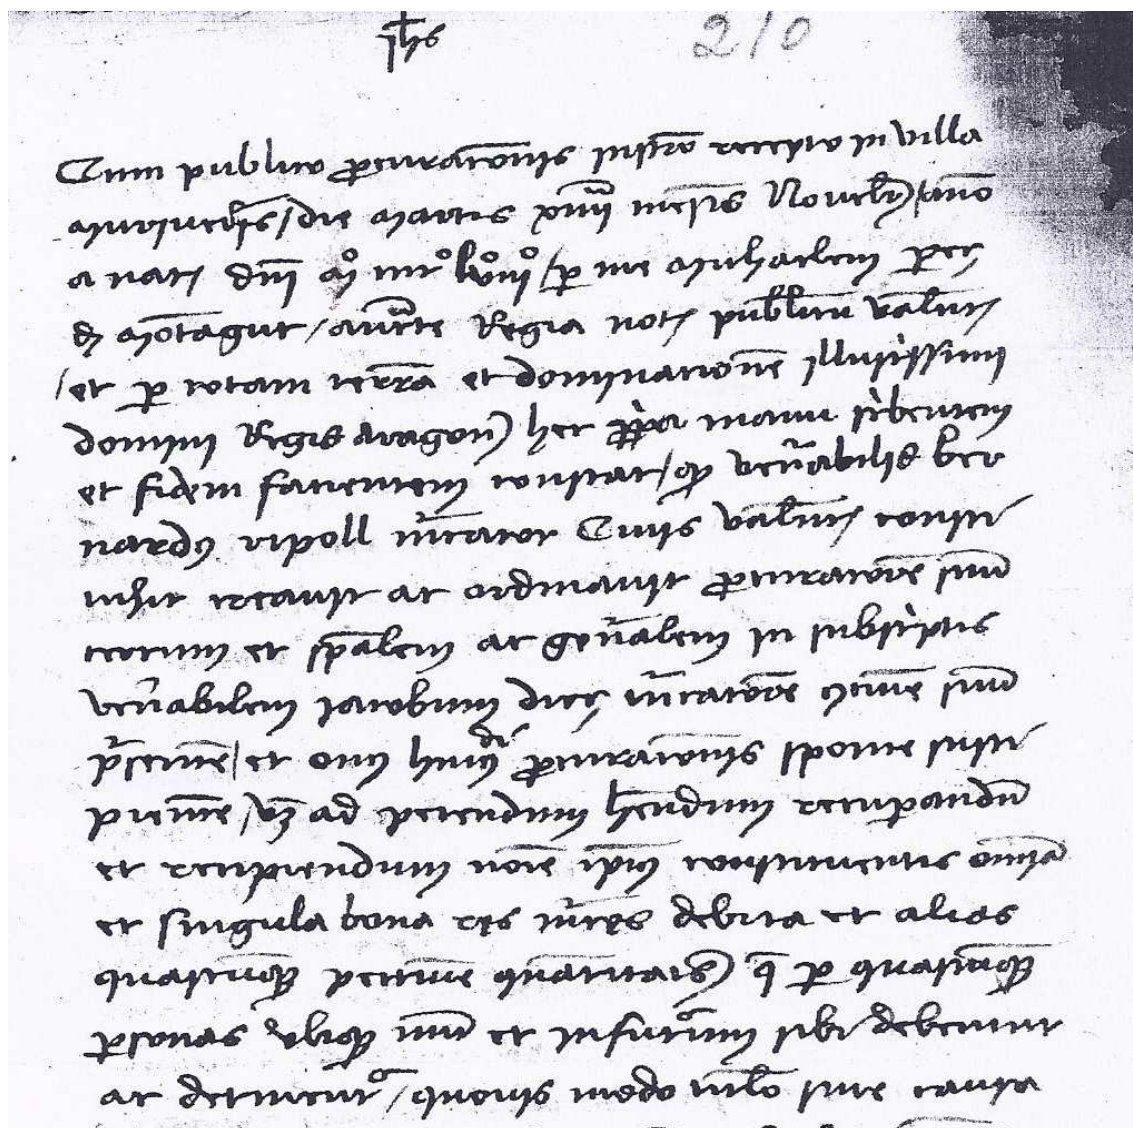 Jhs 210
Cum publico procurationis instro recepto in villa
Muriveteris / die martis xviiii mensis Novembr / anno
a nat dni Mº
per me Michaelem pereç
de Montagut / auctte Regia not publicum Valent
/ et per totam terram et dominationem illustrissimi
domini Regis Aragon hec propria manu scribentem
et fidem facientem constat / quod venerabilis ber
nardus ripoll mercator Civis Valent consti
tuhit creavit ac ordinavit procuratorem suum
certum et spalem ac generalem in subscriptis
venerabilem Jacobum mercatorem suum
presentem / et onus huiusdi procurationis sponte susci
pientem / vz ad petendum hendum recuperandum
et recipiendum noie ipius constituentis omnia
et singula bona res merces debita et alias
quascunque pecunie quantitates que per quascunque
personas ubique nunc et infuturum sibi debentur
ac detinentur / quovis modo titulo sive causa